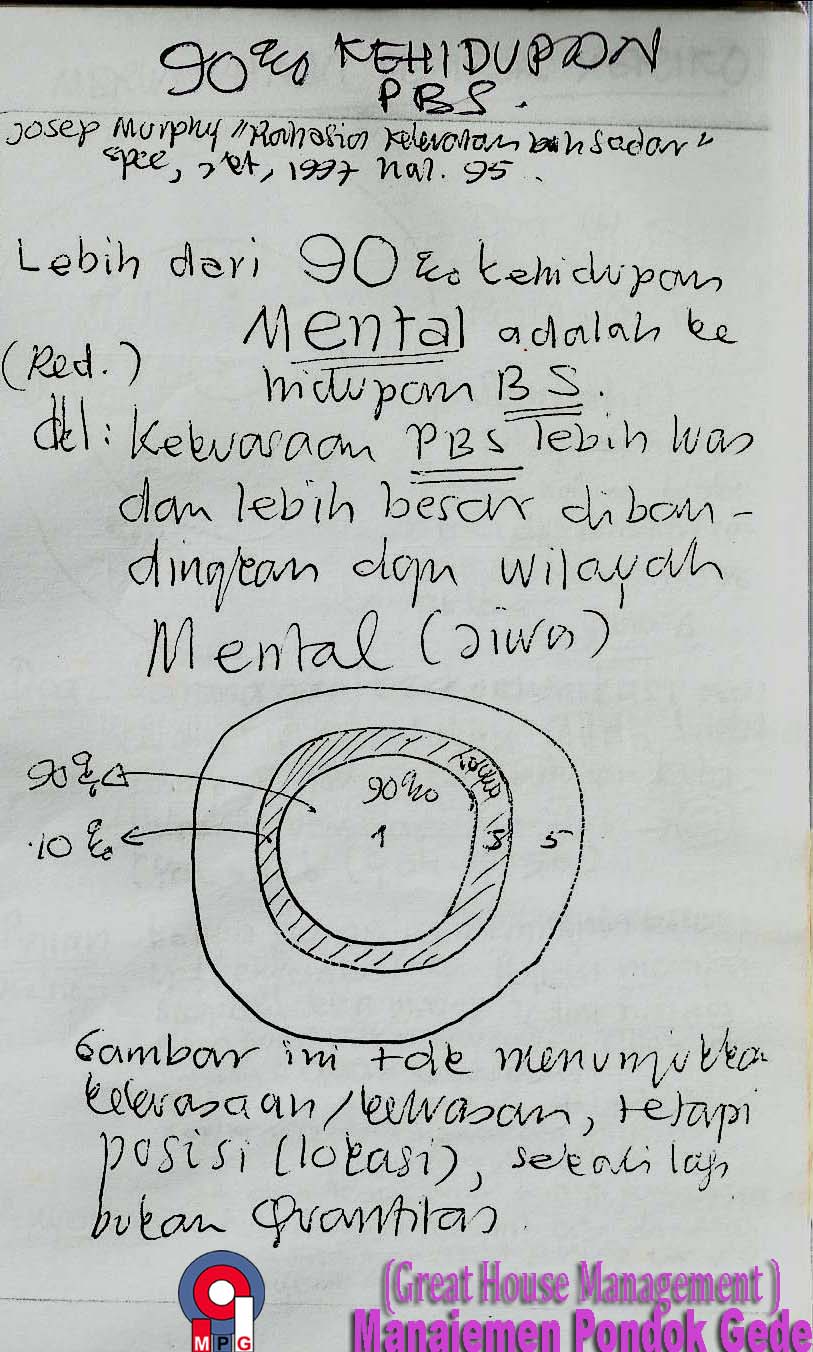 90% KEHIDUPAN
PBS.
Josep Murphy "Rahasia Kekuatan bwh sadar"
Spec, Jkt, 1997 hal. 95.
Lebih dari 90% kehidupan
Mental adalah ke
(Red.)
hidupan BS.
dkl: Kekuasaan PBS lebih luas
dan lebih besar diban-
dingkan dgn wilayah
Mental (Jiwa)
90%
10%
90%
1
3
5
Gambar ini tdk menunjukkan
kekuasaan/keluasan, tetapi
posisi (lokasi), sekali lagi
bukan Quantitas.
MPG
(Great House Management)
Manajemen Pondok Gede